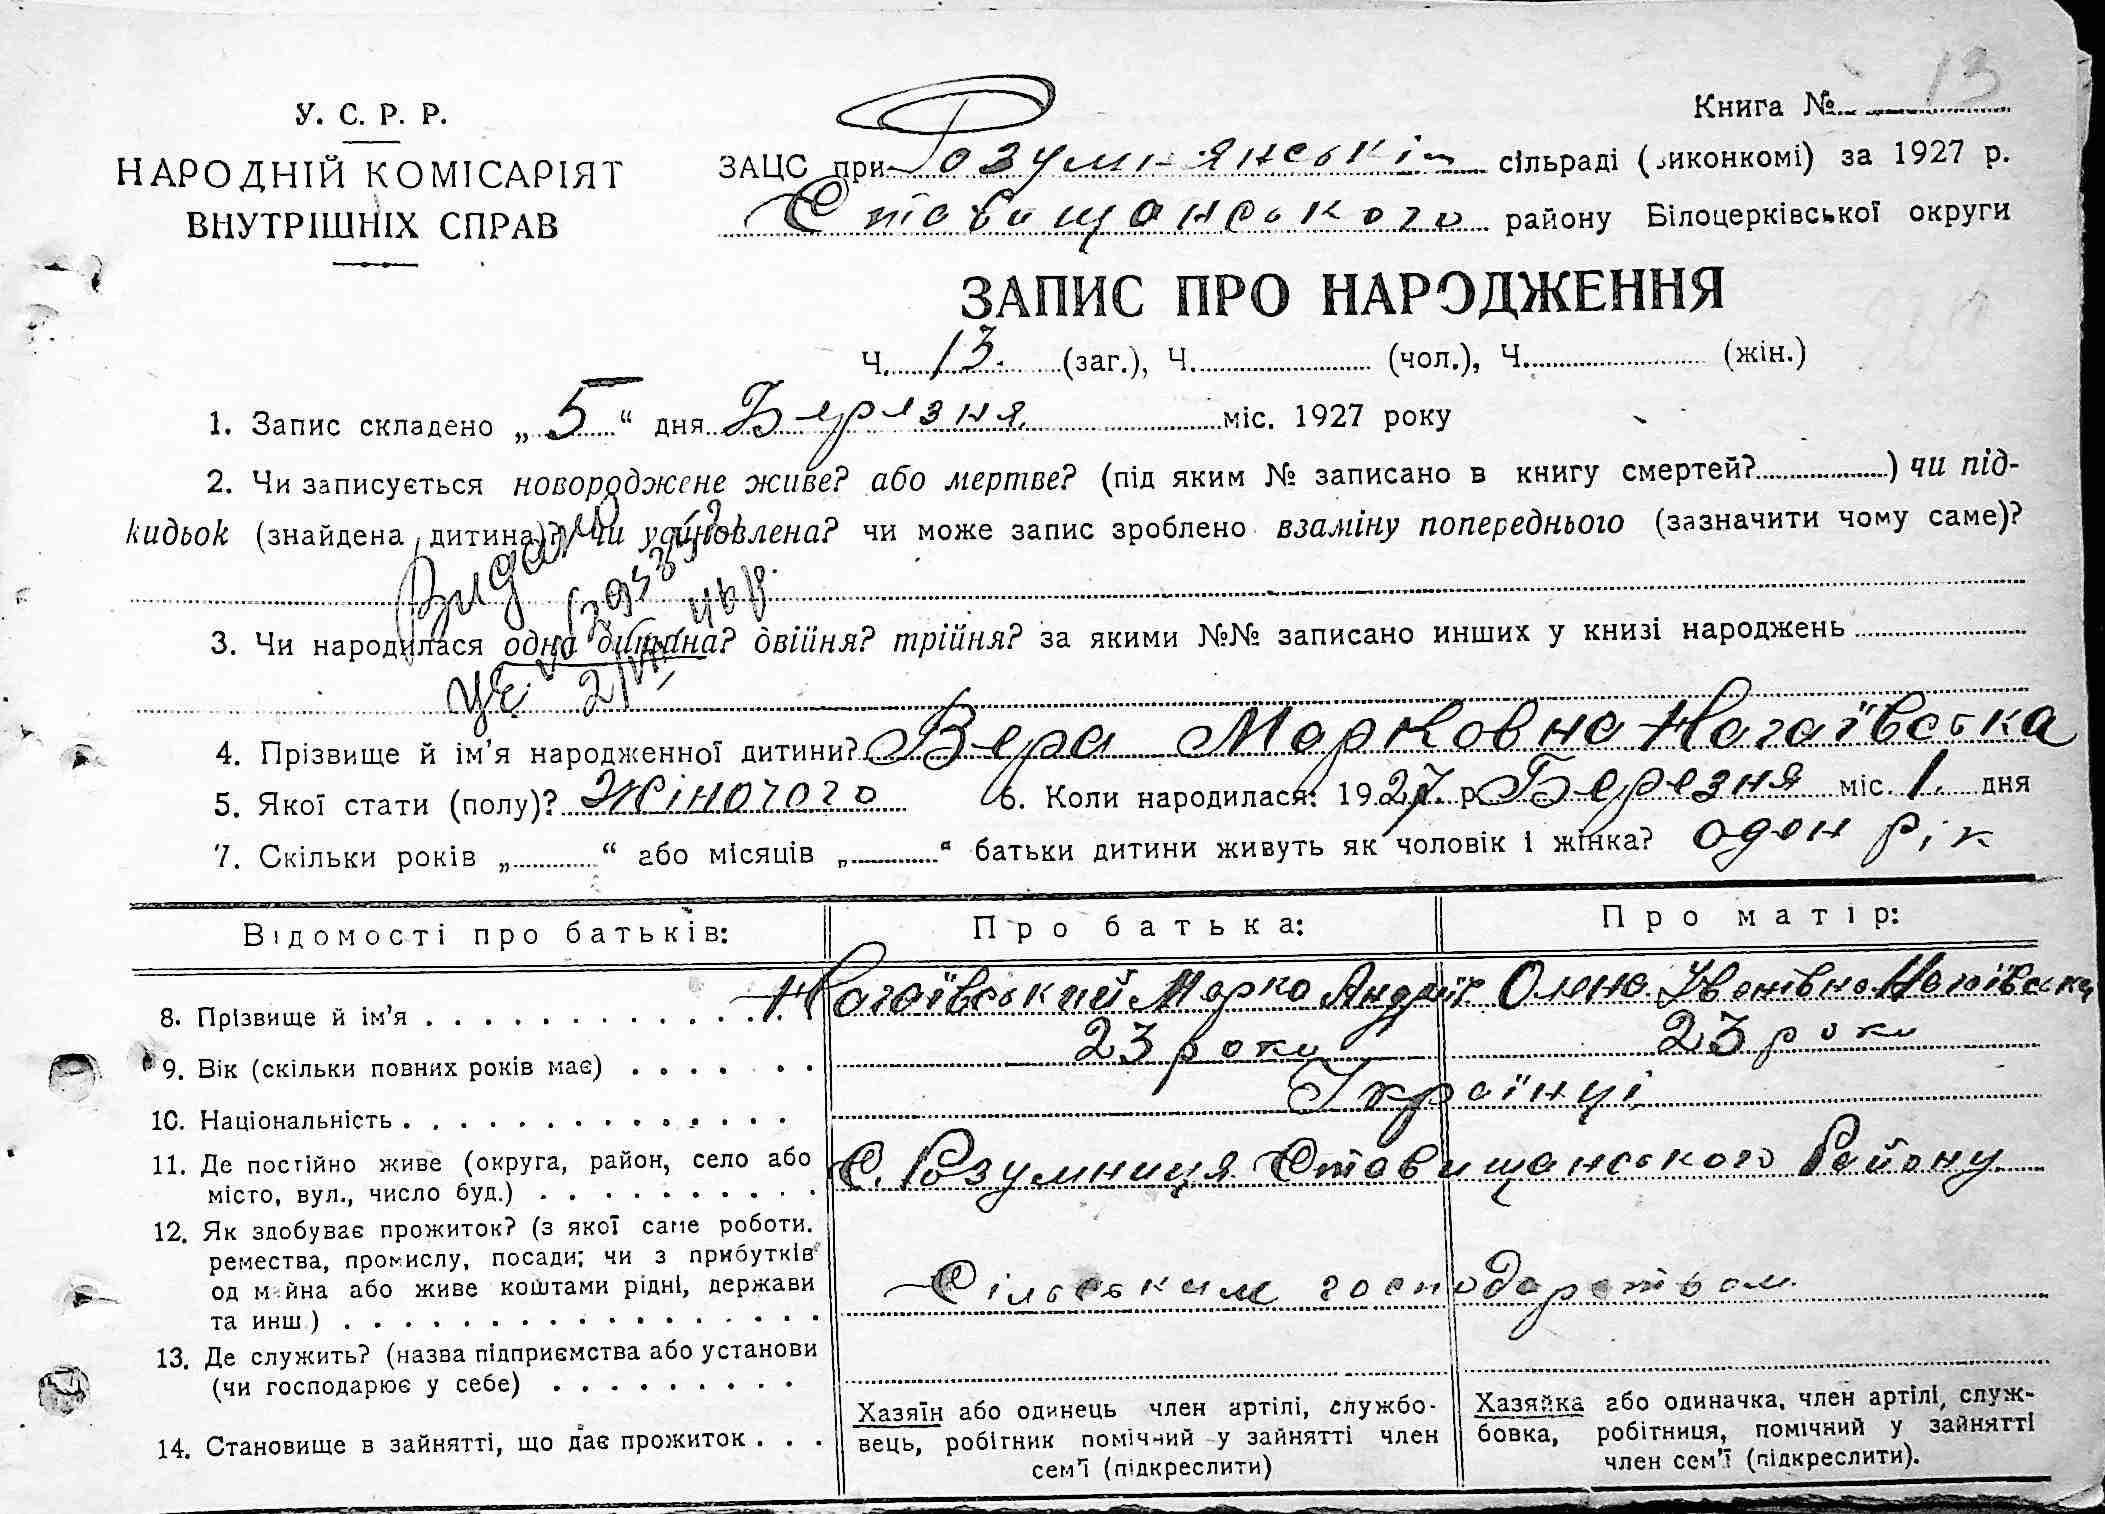 13
У. С. Р. Р.
НАРОДНІЙ КОМІСАРІЯТ
ВНУТРІШНІХ СПРАВ
Книга № 
ЗАЦС при Розумнянській сільраді (виконкомі) за 1927 р.
Ставищанського району Білоцерківської округи
ЗАПИС ПРО НАРОДЖЕННЯ
Ч. 13. (заг.), Ч. (чол.), Ч. (жін.)
1. Запис складено „5“ дня Березня міс. 1927 року
2. Чи записується новороджене живе? або мертве? (під яким № записано в книгу смертей? ) чи під-
кидьок (знайдена дитина)? чи усиновлена? чи може запис зроблено взаміну попереднього (зазначити чому саме)?
Видано
3. Чи народилася одна дитина? двійня? трійня? за якими №№ записано инших у книзі народжень
4. Прізвище й ім'я народженної дитини? Вера Марковна Нагаївська
5. Якої стати (полу)? Жіночого 6. Коли народилася: 1927 р. Березня міс. 1. дня
7. Скільки років „ “ або місяців „ “ батьки дитини живуть як чоловік і жінка? один рік
Відомості про батьків:
Про батька:
Про матір:
8. Прізвище й ім'я Нагаївський Марко Андрій Олена Іванівна Нагаївська
9. Вік (скільки повних років має) 23 роки 23 роки
10. Національність Українці
11. Де постійно живе (округа, район, село або
місто, вул., число буд.) С. Розумниця Ставищанського Району
12. Як здобуває прожиток? (з якої саме роботи.
ремества, промислу, посади; чи з прибутків
од майна або живе коштами рідні, держави
та инш.) Сільським господарством
13. Де служить? (назва підприємства або установи
(чи господарює у себе)
14. Становище в зайнятті, що дає прожиток
Хазяїн або одинець член артілі, службо-
вець, робітник помічний у зайнятті член
сем'ї (підкреслити)
Хазяйка або одиначка, член артілі, служ-
бовка, робітниця, помічний у зайнятті
член сем'ї (підкреслити).